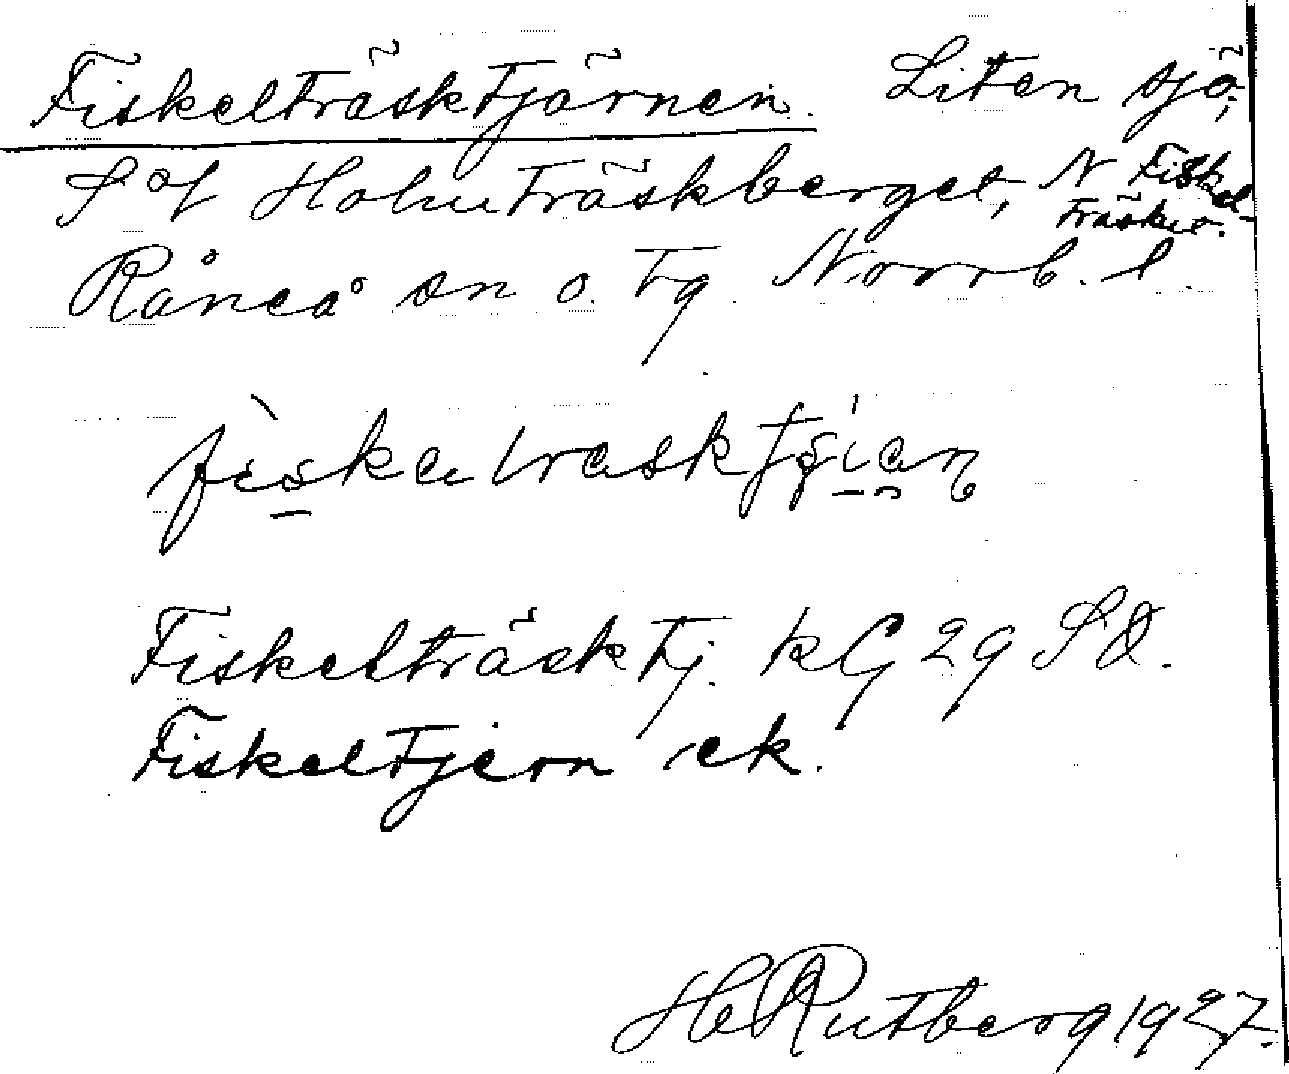 Fiskelträsktjärnen. Liten sjö,
S of Holmträskberget, N Fiskel-
träsket.
Råneå sn o. tg. Norrb. l.
Fiskelträsktj. kG 29 SO.
Fiskeltjern ek.
H Rutberg 1927.